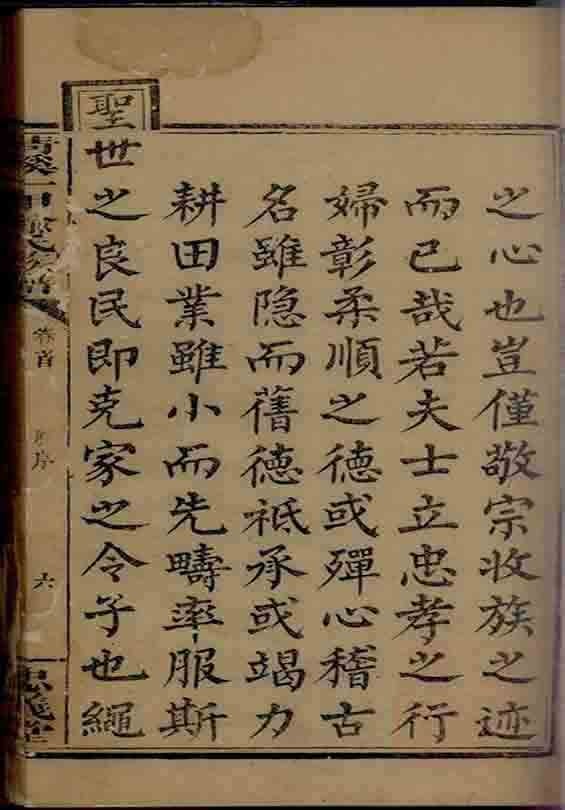 之心也豈僅敬宗收族之迹
而已哉若夫士立忠孝之行
婦彰柔順之德或殫心稽古
名雖隐而舊德祗承或竭力
耕田業雖小而先疇率服斯
聖世之良民即克家之令子也繩
卷首
序
六